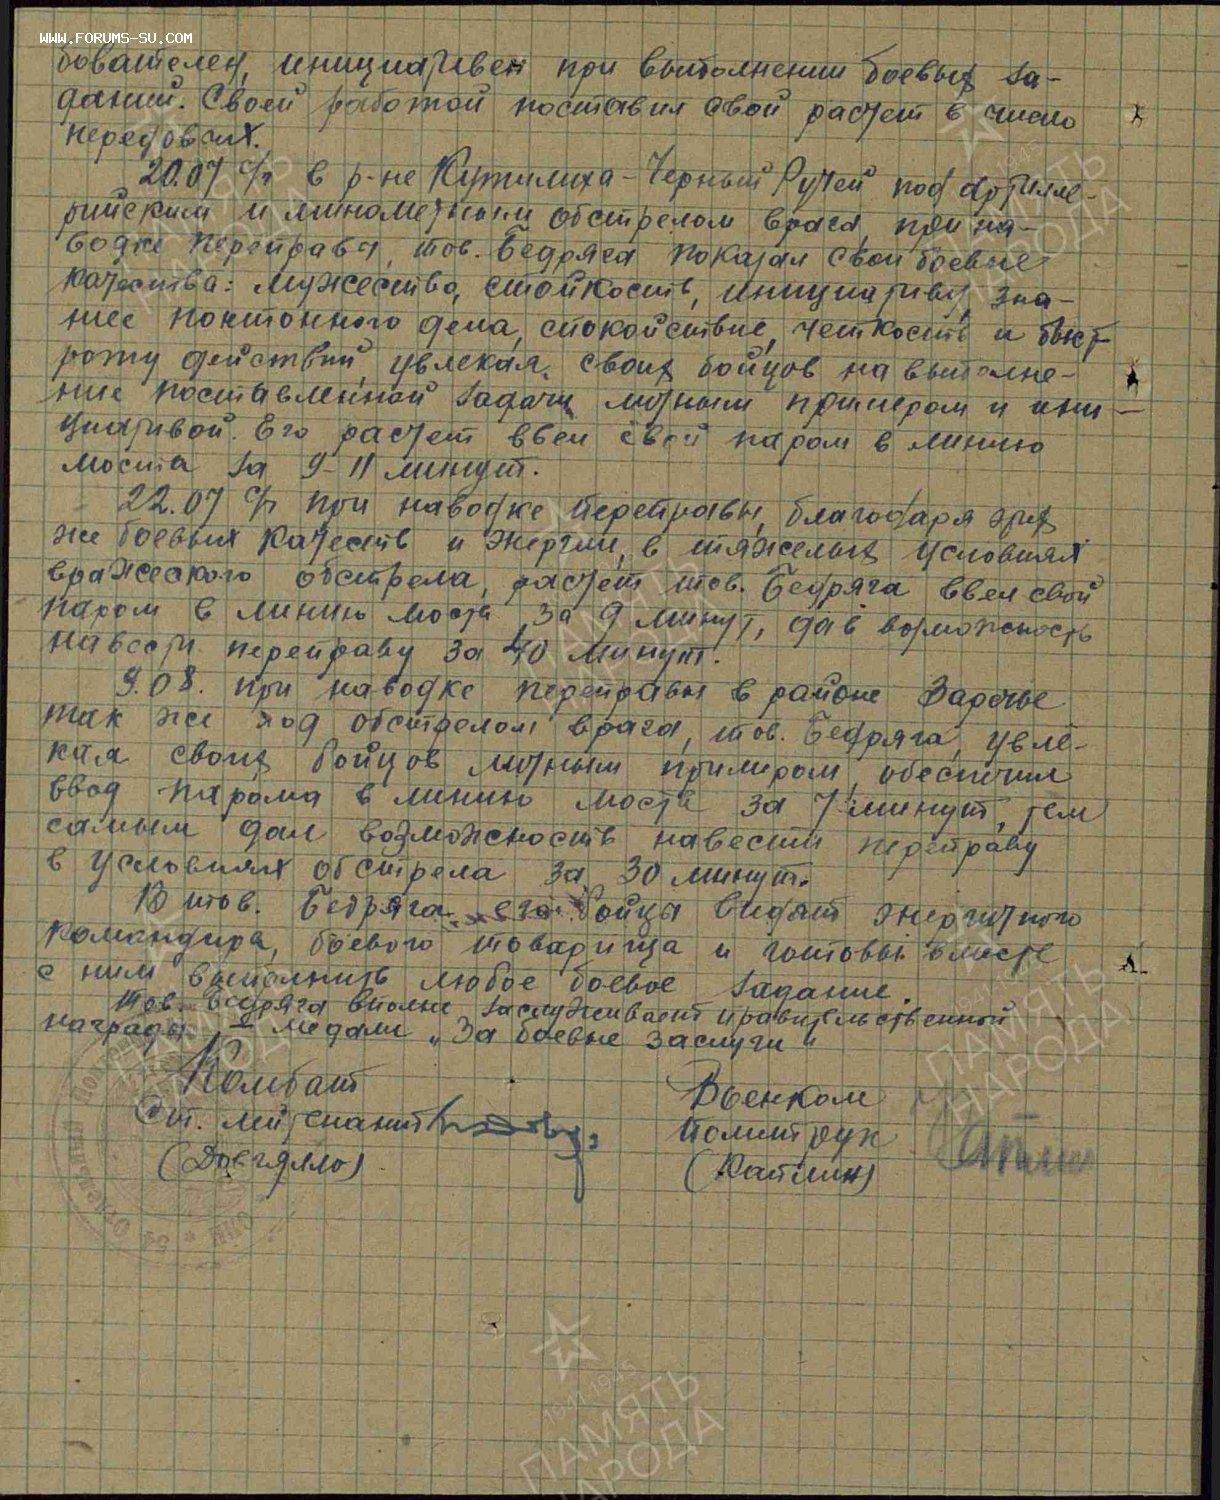 WWW.FORUMS-SU.COM
бователен, инициативен при выполнении боевых за-
даний. Своей работой поставил свой расчет в число
передовых.
20.07 с/г в р-не Кутилиха - Черный Ручей под артилле-
рийским и минометным обстрелом врага, при на-
водке переправы, тов. Бедряга показал свои боевые
качества: мужество, стойкость, инициативу, зна-
ние понтонного дела, спокойствие, четкость и быст-
роту действий, увлекая своих бойцов на выполне-
ние поставленной задачи личным примером и ини-
циативой. Его расчет ввел свой паром в линию
моста за 9-11 минут.
22.07 с/г при наводке переправы, благодаря этих
же боевых качеств и энергии, в тяжелых условиях
вражеского обстрела, расчет тов. Бедряга ввел свой
паром в линию моста за 9 минут, дав возможность
навести переправу за 40 минут.
9.08. при наводке переправы в районе Заречье
так же под обстрелом врага, тов. Бедряга, увле-
кая своих бойцов личным примером, обеспечил
ввод парома в линию моста за 7 минут, тем
самым дал возможность навести переправу
в условиях обстрела за 30 минут.
В тов. Бедряга его бойцы видят энергичного
командира, боевого товарища и готовы вместе
с ним выполнить любое боевое задание.
Тов. Бедряга вполне заслуживает правительственной
награды - медали "За боевые заслуги"
Комбат
Ст. лейтенант
(Довгялло)
Военком
политрук
(Каплин)
Каплин
ПАМЯТЬ
НАРОДА
1941-1945